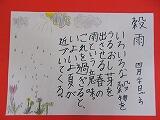 穀雨
四月二十日
いろいろな穀物を
うるおし芽を
出させる春の
雨という意味
これを過ぎると
いよいよ夏が
近づいてくる